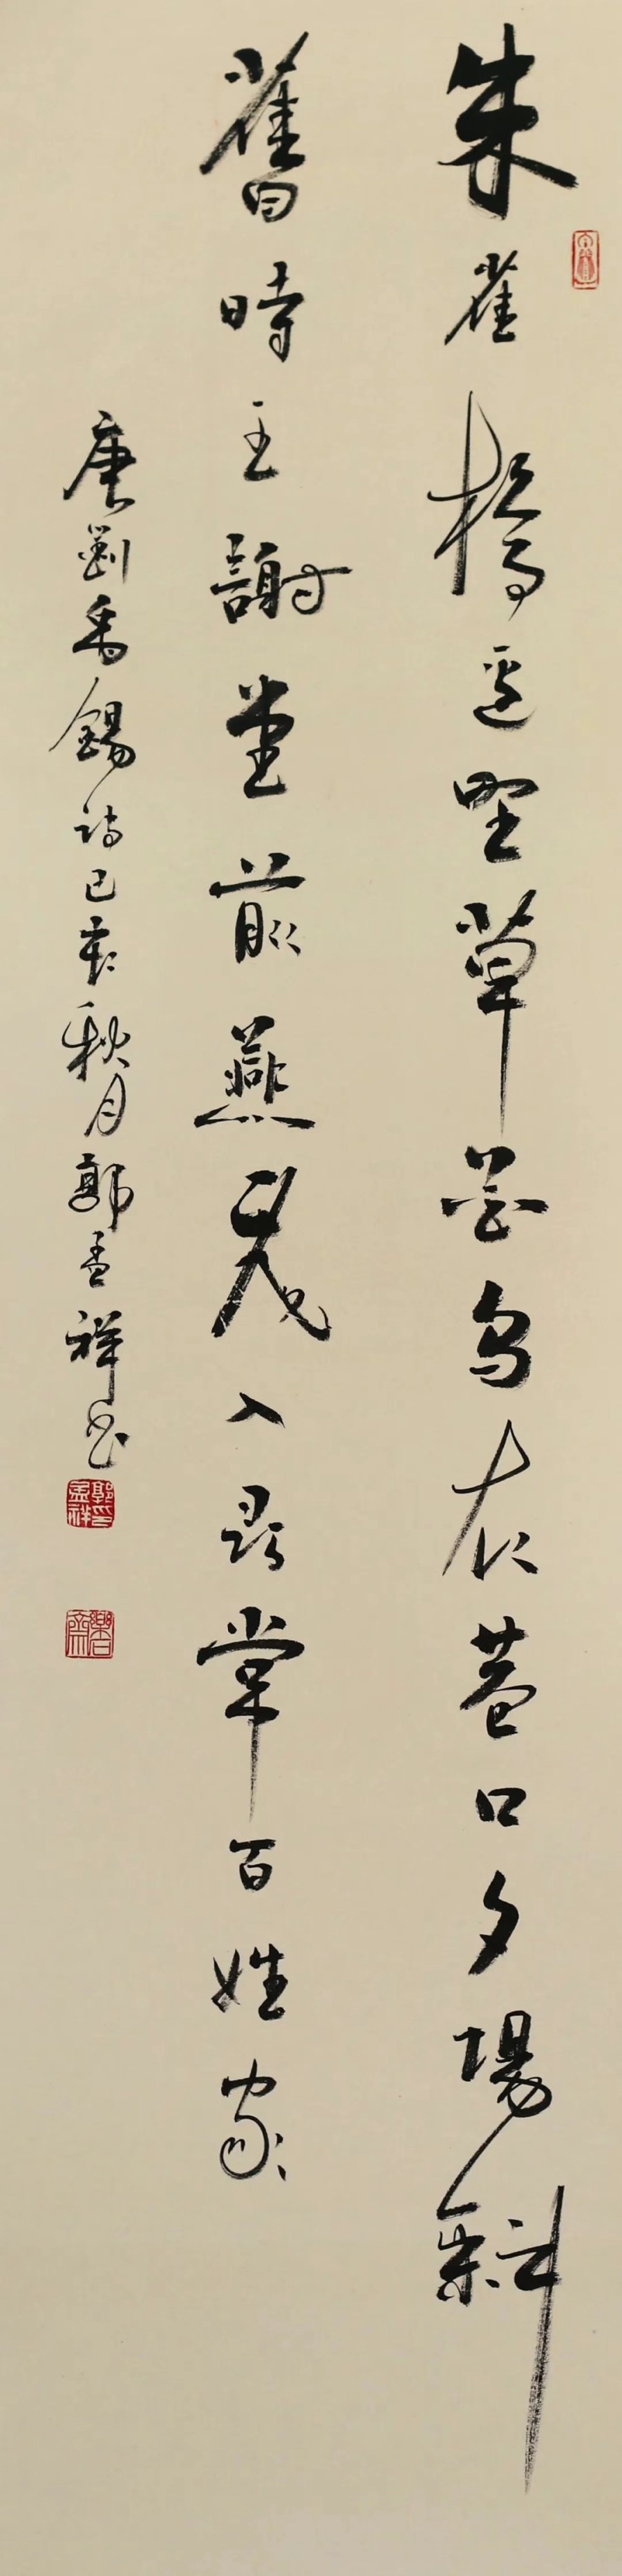 朱雀橋邊野草花烏衣巷口夕陽斜
舊時王謝堂前燕飛入尋常百姓家
唐劉禹錫詩己亥秋月郭孟祥書
郭孟祥印